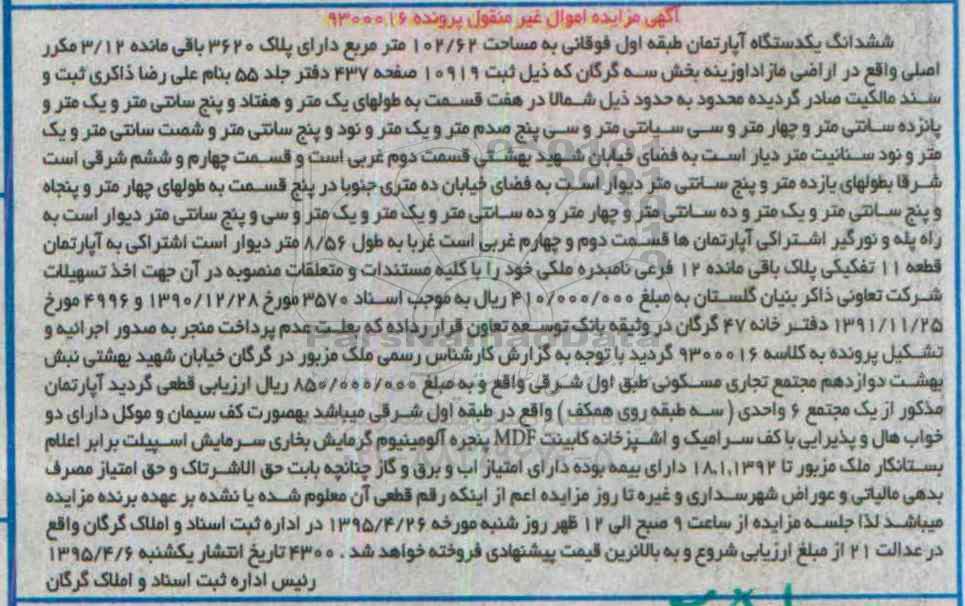 آگهی مزایده اموال غیر منقول پرونده ۹۳۰۰۰۱۶
ششدانگ یکدستگاه آپارتمان طبقه اول فوقانی به مساحت ۱۰۲/۶۲ متر مربع دارای پلاک ۳۶۲۰ باقی مانده ۳/۱۲ مکرر
اصلی واقع در اراضی مازاداوزینه بخش سه گرگان که ذیل ثبت ۱۰۹۱۹ صفحه ۴۳۷ دفتر جلد ۵۵ بنام علی رضا ذاکری ثبت و
سند مالکیت صادر گردیده محدود به حدود ذیل شمالا در هفت قسمت به طولهای یک متر و هفتاد و پنج سانتی متر و یک متر و
پانزده سانتی متر و چهار متر و سی سیانتی متر و سی پنج صدم متر و یک متر و نود و پنج سانتی متر و شصت سانتی متر و یک
متر و نود سنانیت متر دیار است به فضای خیابان شهید بهشتی قسمت دوم غربی است و قسمت چهارم و ششم شرقی است
شرقا بطولهای یازده متر و پنج سانتی متر دیوار است به فضای خیابان ده متری جنوبا در پنج قسمت به طولهای چهار متر و پنجاه
و پنج سانتی متر و یک متر و ده سانتی متر و چهار متر و ده سانتی متر و یک متر و یک متر و سی و پنج سانتی متر دیوار است به
راه پله و نورگیر اشتراکی آپارتمان ها قسمت دوم و چهارم غربی است غربا به طول ۸/۵۶ متر دیوار است اشتراکی به آپارتمان
قطعه ۱۱ تفکیکی پلاک باقی مانده ۱۲ فرعی نامبدره ملکی خود را با کلیه مستندات و متعلقات منصوبه در آن جهت اخذ تسهیلات
شرکت تعاونی ذاکر بنیان گلستان به مبلغ ۴۱۰/۰۰۰/۰۰۰ ریال به موجب اسناد ۳۵۷۰ مورخ ۱۳۹۰/۱۲/۲۸ و ۴۹۹۶ مورخ
۱۳۹۱/۱۱/۲۵ دفتر خانه ۴۷ گرگان در وثیقه بانک توسعه تعاون قرار رداده که بعلت عدم پرداخت منجر به صدور اجرائیه و
تشکیل پرونده به کلاسه ۹۳۰۰۰۱۶ گردید با توجه به گزارش کارشناس رسمی ملک مزبور در گرگان خیابان شهید بهشتی نبش
بهشت دوازدهم مجتمع تجاری مسکونی طبق اول شرقی واقع و به مبلغ ۸۵۰/۰۰۰/۰۰۰ ریال ارزیابی قطعی گردید آپارتمان
مذکور از یک مجتمع ۶ واحدی ( سه طبقه روی همکف ) واقع در طبقه اول شرقی میباشد بهصورت کف سیمان و موکل دارای دو
خواب هال و پذیرایی با کف سرامیک و اشپزخانه کابینت MDF پنجره آلومینیوم گرمایش بخاری سرمایش اسپیلت برابر اعلام
بستانکار ملک مزبور تا ۱۸,۱,۱۳۹۲ دارای بیمه بوده دارای امتیاز اب و برق و گاز چنانچه بابت حق الاشرتاک و حق امتیاز مصرف
بدهی مالیاتی و عوراض شهرسداری و غیره تا روز مزایده اعم از اینکه رقم قطعی آن معلوم شده یا نشده بر عهده برنده مزایده
میباشد لذا جلسه مزایده از ساعت ۹ صبح الی ۱۲ ظهر روز شنبه مورخه ۱۳۹۵/۴/۲۶ در اداره ثبت اسناد و املاک گرگان واقع
در عدالت ۲۱ از مبلغ ارزیابی شروع و به بالانرین قیمت پیشنهادی فروخته خواهد شد . ۴۳۰۰ تاریخ انتشار یکشنبه ۱۳۹۵/۴/۶
رئیس اداره ثبت اسناد و املاک گرگان
ParsNamadData